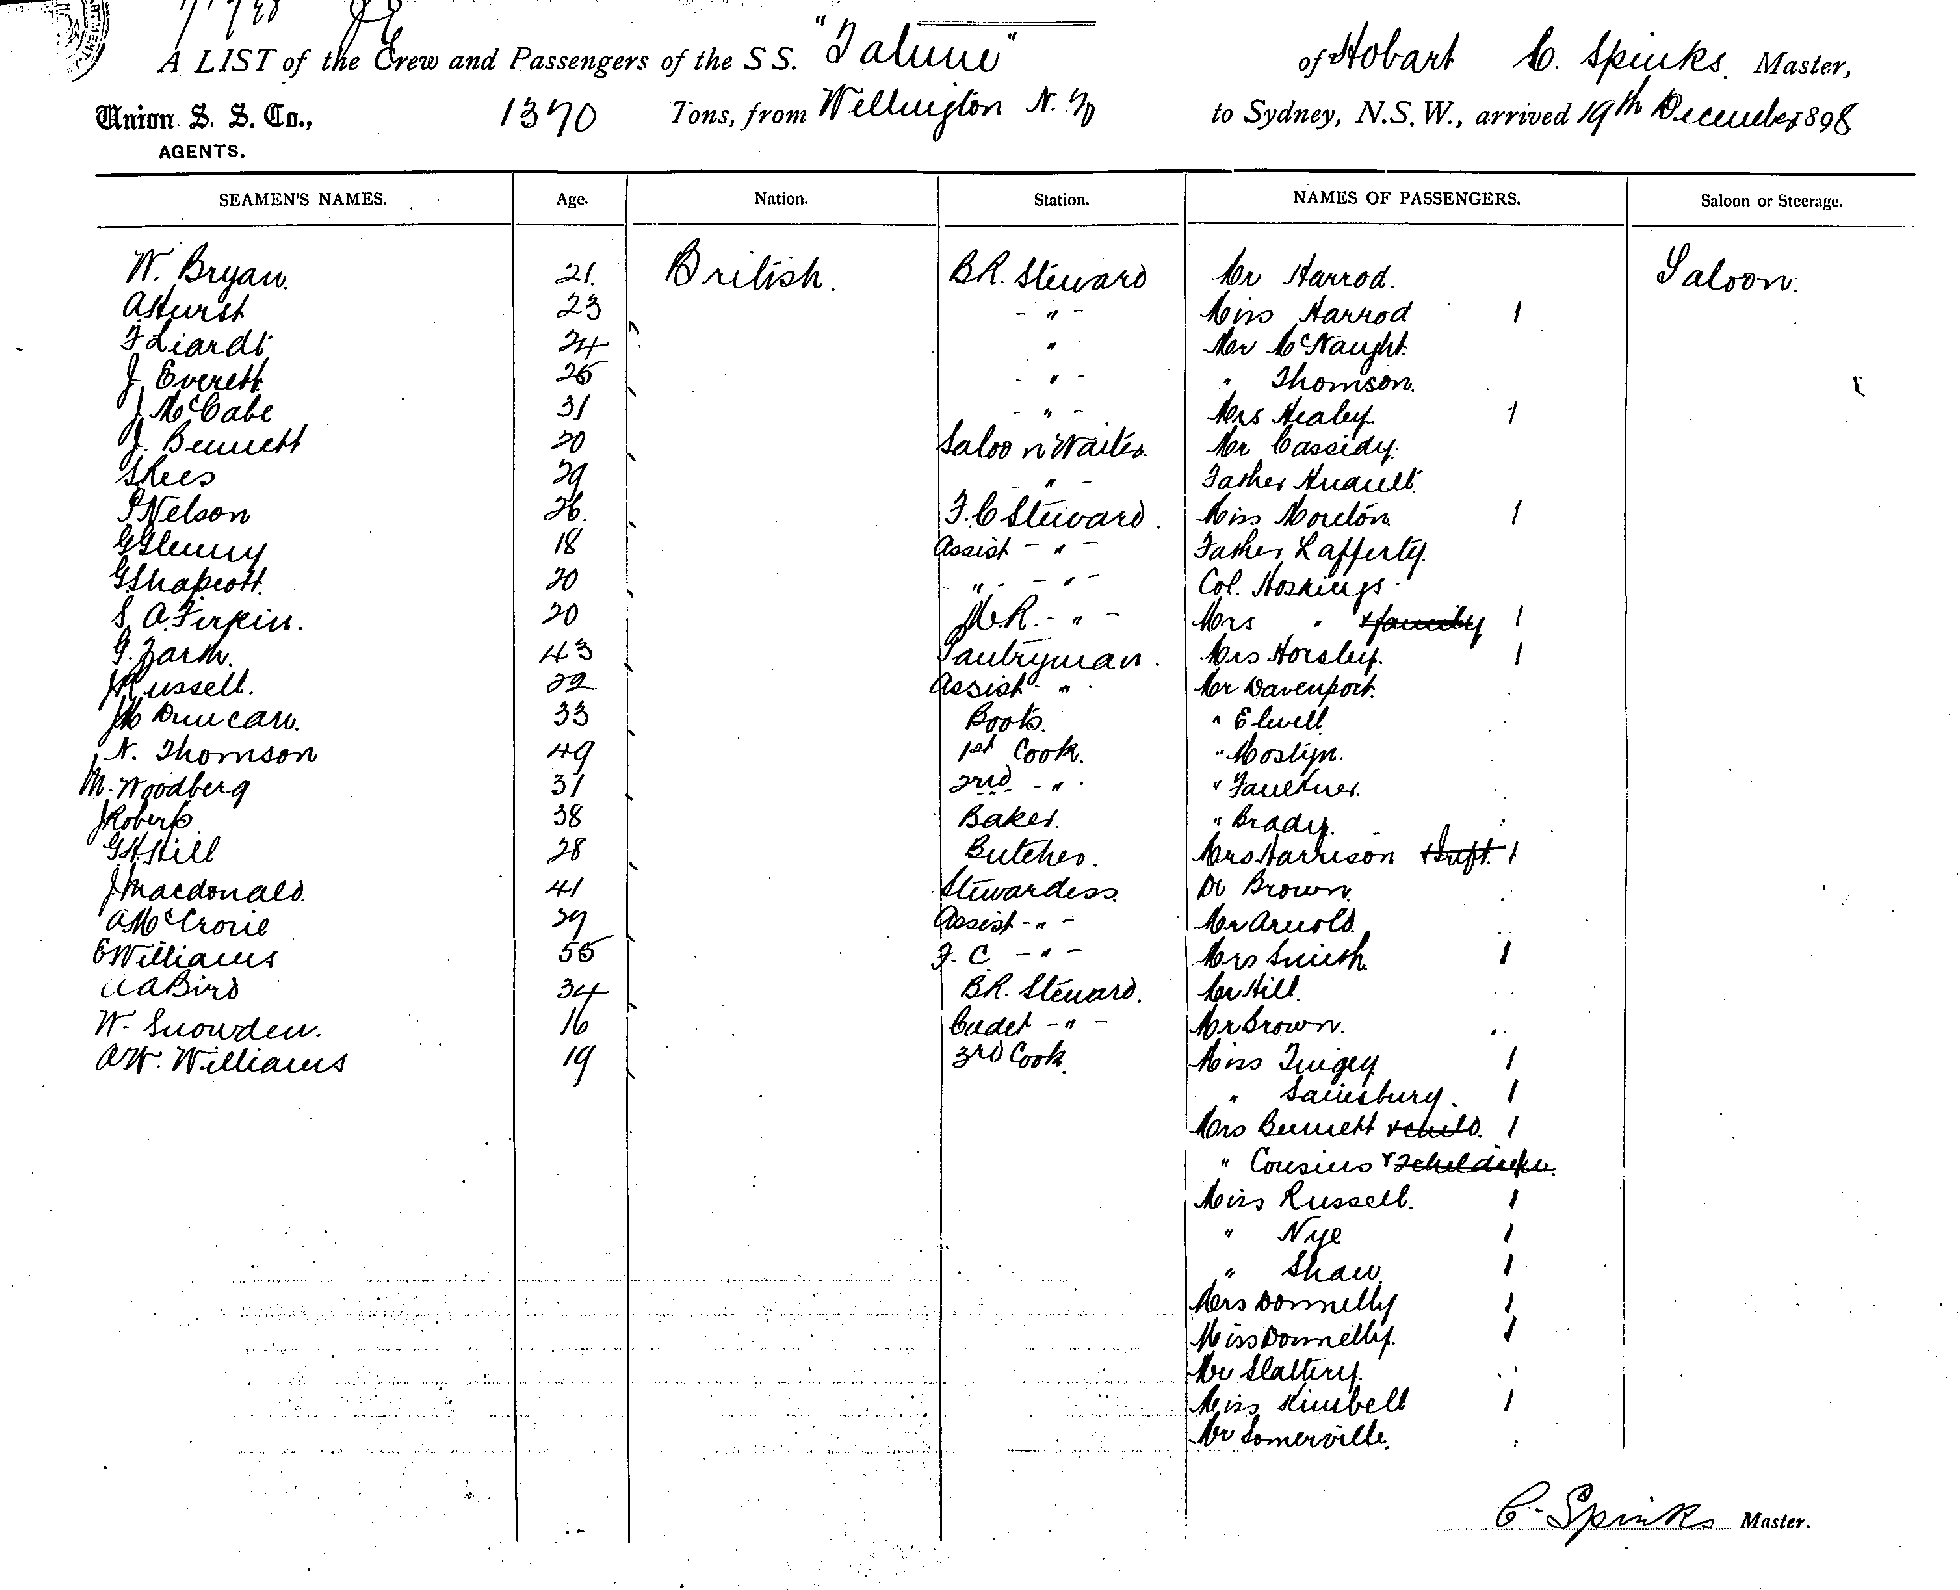 A LIST of the Crew and Passengers of the S S. "Talune" of Hobart C. Spinks. Master,
Union S. S. Co., 1370 Tons, from Wellington N. Z to Sydney, N.S.W., arrived 19th December 1898
AGENTS.
SEAMEN'S NAMES. Age. Nation. Station. NAMES OF PASSENGERS. Saloon or Steerage.
W. Bryan. 21. British. B.R. Steward Mr Harrod. Saloon.
A Hurst 23 - " - Miss Harrod 1
F Liardt 24 " Mr McNaught.
J. Everett 25 - " - " Thomson.
J. McCabe 31 - " - Mrs Healey. 1
J. Bennett 20 Saloon Waiter. Mr Cassidy.
S Rees 29 " - Father Huault.
P Nelson 26. F.C Steward. Miss Moreton 1
G Glenny 18 Assist - " - Father Lafferty.
G Shapcott. 20 " - " - Col. Hoskings
S. A. Firkin. 20 M.R. - " - Mrs " & family 1
G. Zarth. 43 Pantryman. Mrs Horsley. 1
J Russell. 22 Assist - " Mr Davenport.
J M Duncan. 33 Boots. " Elwell
N. Thomson 49 1st Cook. " Mostyn.
M. Woodberg 31 2nd - " " Faulkner.
J Roberts 38 Baker. " Brady.
G H Hill 28 Butcher. Mrs Harrison 1
J Macdonald. 41 Stewardess. Dr Brown.
A McCrorie 29 Assist - " - Mr Arnold
E Williams 55 F. C - " - Mrs Smith 1
A A Bird 34 B.R. Steward. Mr Hill.
W. Snowden. 16 Cadet - " - Mr Brown.
A W. Williams 19 3rd Cook. Miss Twigey 1
" Sainsbury. 1
Mrs Bennett & child. 1
" Cousins & 2 children.
Miss Russell. 1
" Nye 1
" Shaw 1
Mrs Donnelly 1
Miss Donnelly. 1
Mr Slattery.
Miss Kimbell 1
Mr Somerville.
C. Spinks Master.